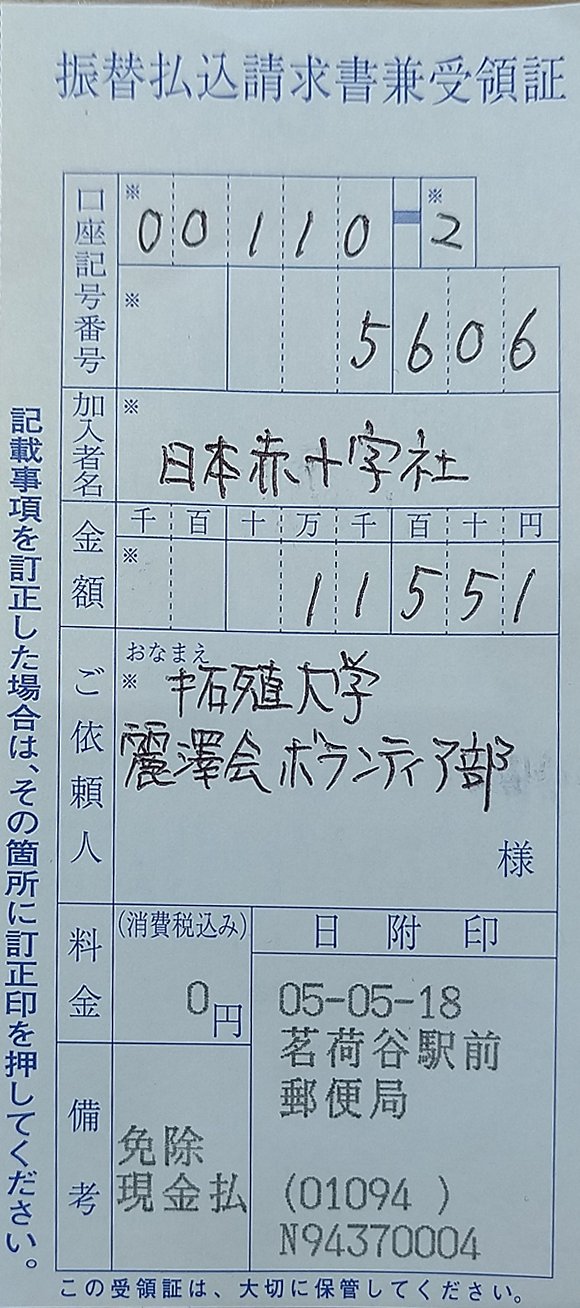 振替払込請求書兼受領証
口座記号番号
※ 00110-※2
※ 5606
加入者名
※
日本赤十字社
金額
千 百 十 万 千 百 十 円
※ 11551
ご依頼人
おなまえ
※ 拓殖大学
麗澤会ボランティア部
様
料金
(消費税込み)
0円
日附印
05-05-18
茗荷谷駅前
郵便局
(01094 )
N94370004
備考
免除
現金払
記載事項を訂正した場合は、その箇所に訂正印を押してください。
この受領証は、大切に保管してください。